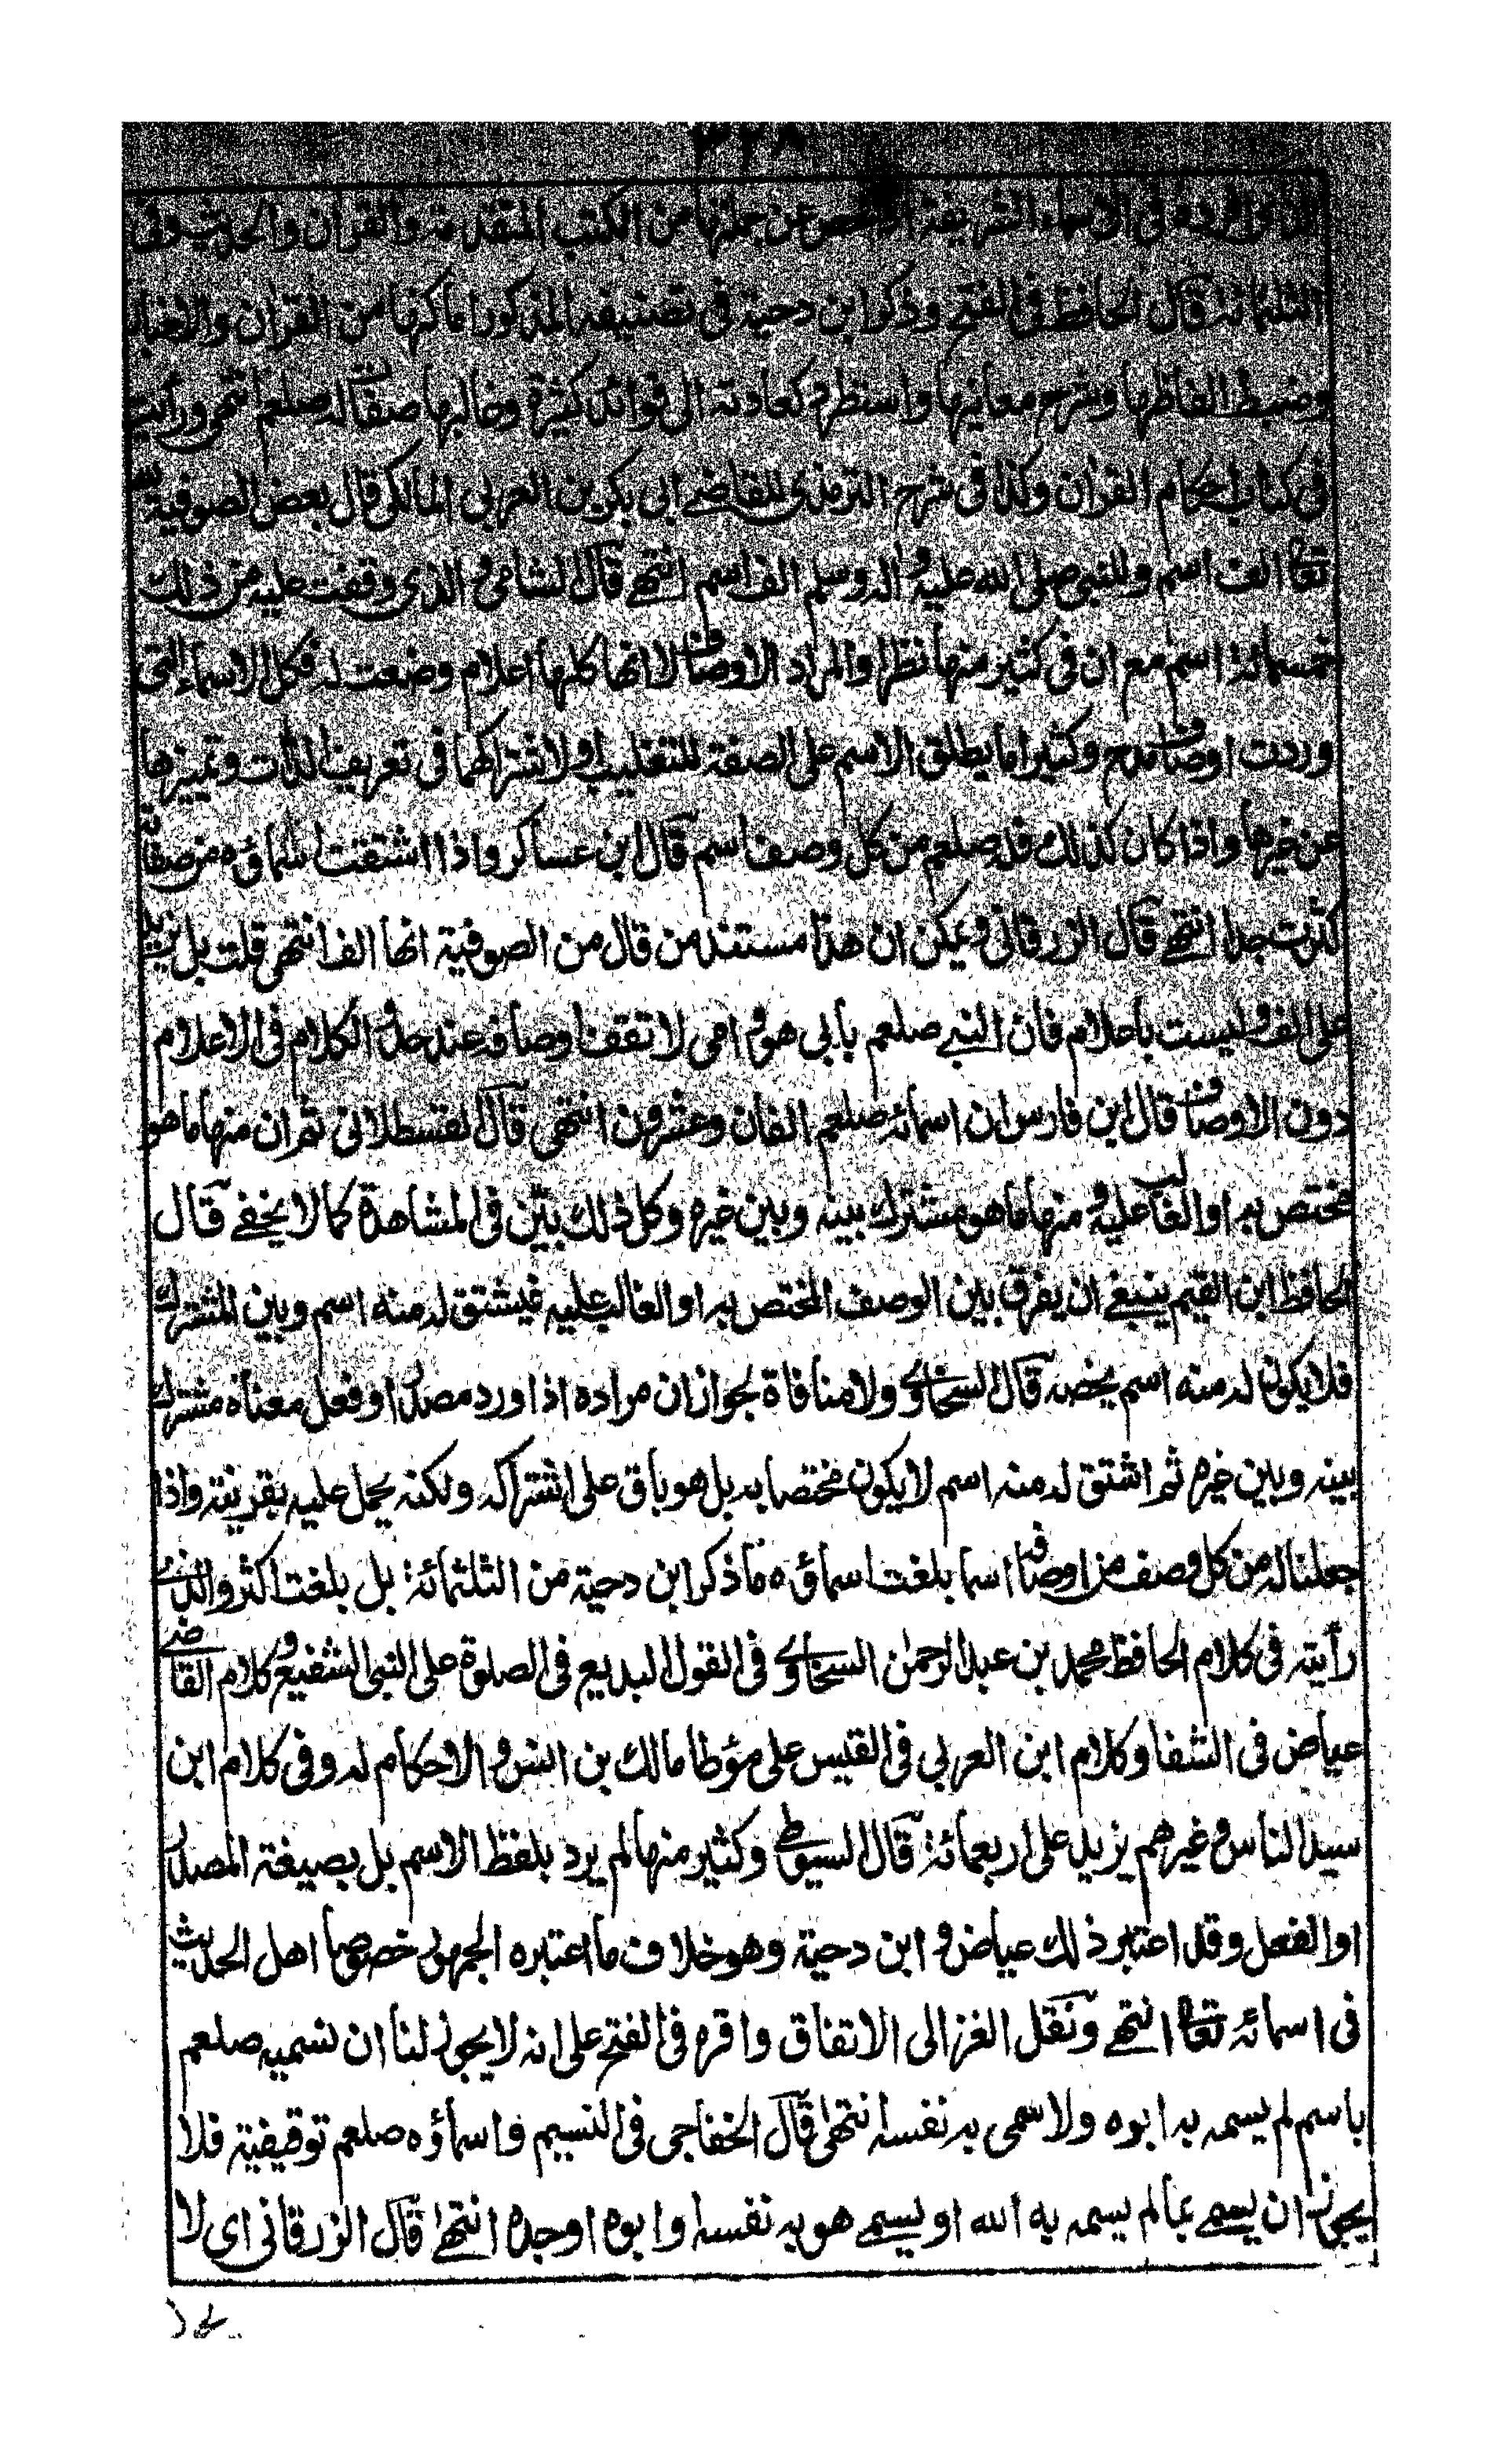 ٣٢٨
الذي افرده في الاسماء الشريفة اذا فحص عن جملتها من الكتب المتقدمة والقران والحديث وفى
الثلثمائة قال الحافظ في الفتح وذكر ابن دحية في تصنيفه المذكور اماكنها من القران والاخبار
وضبط الفاظها وشرح معانيها واستطرد كعادته الى فوائد كثيرة وغالبها صفاته له صلعم انتهى ورأيت
في كتاب احكام القران وكذا في شرح الترمذى للقاضى ابى بكر بن العربي المالكى قال بعض الصوفية لله
تعالى الف اسم وللنبى صلى الله عليه واله وسلم الف اسم انتهى قال الشامى والذي وقفت عليه من ذلك
خمسمائة اسم مع ان في كثير منها نظرا والمراد الاوصاف لا انها كلها اعلام وضعت له فكل الاسماء التى
وردت اوصاف مدح وكثيرا ما يطلق الاسم على الصفة للتغليب او لاشتراكهما في تعريف الذات وتميزها
عن غيرها واذا كان كذلك فله صلعم من كل وصف اسم قال ابن عساكر واذا اشتقت اسماؤه من صفاته
كثرت جدا انتهى قال الزرقانى ويمكن ان هذا مستند من قال من الصوفية انها الف انتهى قلت بل يزيد
على الف وليست باعلام فان النبى صلعم بأبي هو وامى لا تقف اوصافه عند حد والكلام في الاعلام
دون الاوصاف قال ابن فارس ان اسمائه صلعم الفان وعشرون انتهى قال القسطلانى ثم ان منها ما هو
مختص به او الغالب عليه ومنها ما هو مشترك بينه وبين غيره وكل ذلك بيّن في المشاهدة كما لا يخفى قال
الحافظ ابن القيم ينبغى ان يفرق بين الوصف المختص به او الغالب عليه فيشتق له منه اسم وبين المشترك
فلا يكون له منه اسم يخصه قال السخاوى ولا منافاة لجواز ان مراده اذا ورد مصدر او فعل معناه مشترك
بينه وبين غيره ثم اشتق له منه اسم لا يكون مختصا به بل هو باق على اشتراكه ولكنه يحمل عليه بقرينته واذا
جعلنا له من كل وصف من اوصافه اسما بلغت اسماؤه ما ذكر ابن دحية من الثلثمائة بل بلغت اكثر والذى
رأيته في كلام الحافظ محمد بن عبد الرحمن السخاوى في القول البديع في الصلوة على النبى الشفيع وكلام القاضى
عياض في الشفا وكلام ابن العربي في القبس على مؤطا مالك بن انس والاحكام له وفي كلام ابن
سيد الناس وغيرهم يزيد على اربعمائة قال السيوطى وكثير منها لم يرد بلفظ الاسم بل بصيغة المصدر
او الفعل وقد اعتبر ذلك عياض و ابن دحية وهو خلاف ما اعتبره الجمهور خصوصا اهل الحديث
في اسمائه تعالى انتهى ونقل الغزالى الاتفاق واقره في الفتح على انه لا يجوز لنا ان نسميه صلعم
باسم لم يسمه به ابوه ولا سمى به نفسه انتهى قال الخفاجى في النسيم واسماؤه صلعم توقيفية فلا
يجوز ان يسمى بما لم يسمه به الله او يسمى هو به نفسه وابوه او جده انتهى قال الزرقانى اى لا